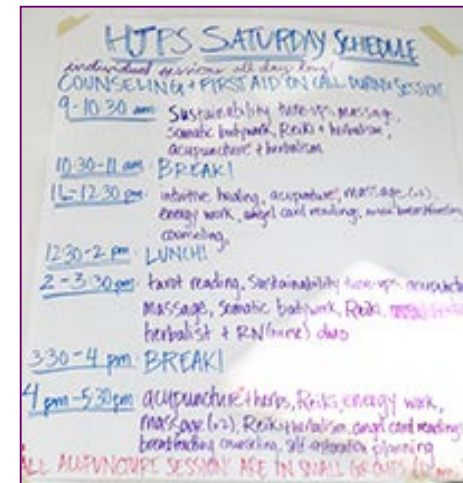 HJPS SATURDAY SCHEDULE
individual sessions all day long!
COUNSELING + FIRST AID ON CALL DURING SESSIONS
9-10:30 am: Sustainability tune-ups, massage,
somatic bodywork, Reiki + herbalism,
acupuncture + herbalism
10:30-11 am BREAK!
11-12:30 pm: intuitive healing, acupuncture, massage (x2),
energy work, angel card reading, breastfeeding
counseling,
12:30-2 pm LUNCH!
2-3:30 pm: tarot reading, Sustainability tune-ups, acupuncture
massage, Somatic bodywork, Reiki,
herbalist + RN (nurse) duo
3:30-4 pm BREAK!
4 pm-5:30pm acupuncture + herbs, Reiki, energy work,
massage (x2), Reiki + herbalism, angel card reading
breastfeeding counseling, self-restoration planning
ALL ACUPUNCTURE SESSIONS ARE IN SMALL GROUPS